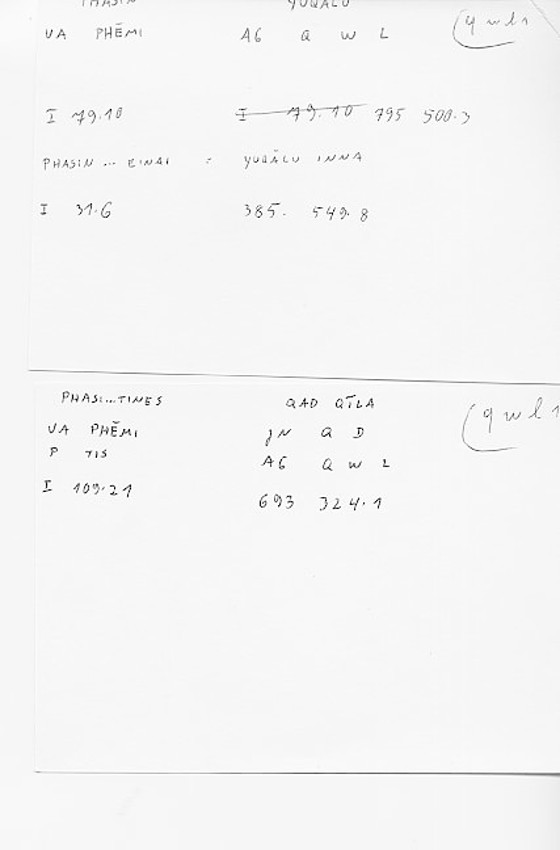 PHASIN YUQĀLU
UA PHĒMI A6 Q W L (qwl1
I 79.10 I 79.10 795 500.3
PHASIN ... EINAI = YUQĀLU INNA
I 31.6 385. 549.8
PHASI...TINES QAD QĪLA (qwl1
UA PHĒMI JN Q D
P TIS A6 Q W L
I 109.21 693 324.1